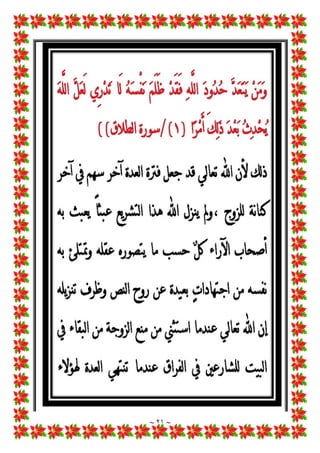 وَمَنْ يَتَعَدَّ حُدُودَ اللَّهِ فَقَدْ ظَلَمَ نَفْسَهُ لَا تَدْرِي لَعَلَّ اللَّهَ
يُحْدِثُ بَعْدَ ذَلِكَ أَمْرًا (١) /سورة الطلاق))
ذلك لأن الله تعالي قد جعل فترة العدة آخر سهم في آخر
كنانة للزوج ، ولم ينزل الله هذا التشريع عبثاً يعبث به
أصحاب الآراء كلٌ حسب ما يتصوره عقله وتمتلئ به
نفسه من اجتهاداتٍ بعيدة عن روح النص وظرف تنزيله
إن الله تعالي عندما استثني من منع الزوجة من البقاء في
البيت للشارعين في الفراق عندما تنتهي العدة لهؤلاء
~ ٢١ ~